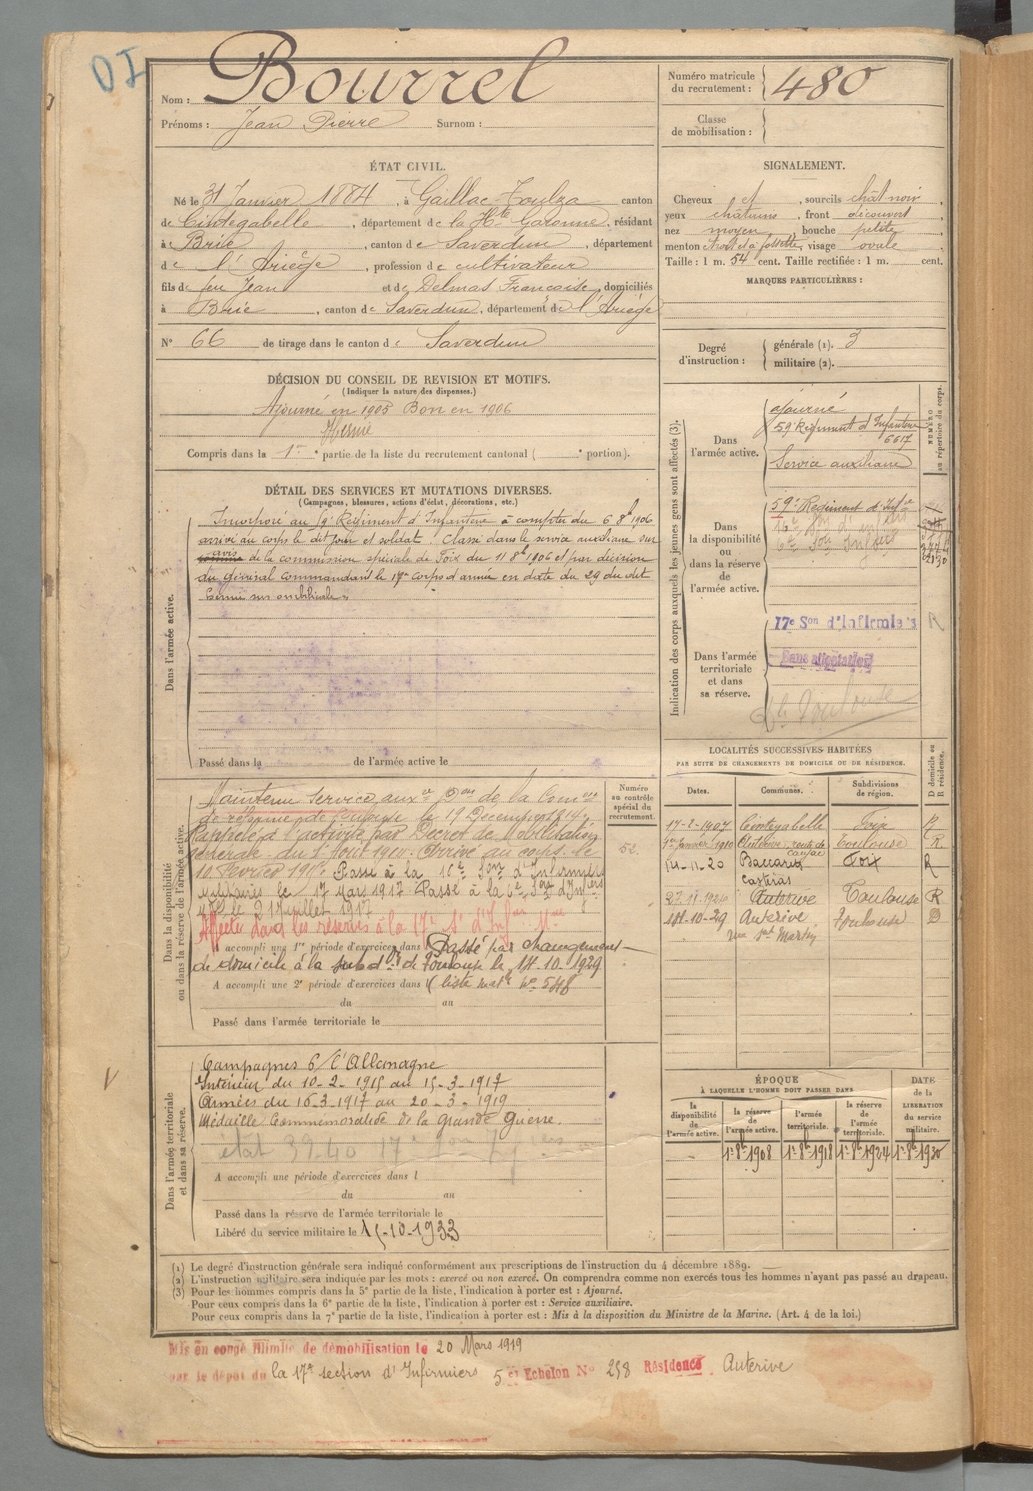 Nom : Bourrel
Prénoms : Jean Pierre Surnom :
Numéro matricule du recrutement : 480
Classe de mobilisation :
ÉTAT CIVIL.
Né le 31 Janvier 1884, à Gaillac-Toulza canton
de Cintegabelle, département de la Hte Garonne, résidant
à Brie, canton de Saverdun, département
de l'Ariège, profession de cultivateur
fils de feu Jean et de Delmas Françoise, domiciliés
à Brie, canton de Saverdun, département de l'Ariège
N° 66 de tirage dans le canton de Saverdun
SIGNALEMENT.
Cheveux et, sourcils chât noir,
yeux châtains, front découvert,
nez moyen, bouche petite,
menton à fossette, visage ovale.
Taille : 1 m. 54 cent. Taille rectifiée : 1 m. cent.
MARQUES PARTICULIÈRES :
Degré d'instruction : générale (1). 3
militaire (2).
DÉCISION DU CONSEIL DE REVISION ET MOTIFS.
(Indiquer la nature des dispenses.)
Ajourné en 1905 Bon en 1906
Hernie
Compris dans la 1re partie de la liste du recrutement cantonal ( e portion).
DÉTAIL DES SERVICES ET MUTATIONS DIVERSES.
(Campagnes, blessures, actions d'éclat, décorations, etc.)
Dans l'armée active.
Incorporé au 59e Régiment d'Infanterie à compter du 6 8bre 1906
arrivé au corps le dit jour et soldat. Classé dans le service auxiliaire sur
avis de la commission spéciale de Foix du 11 8bre 1906 et par décision
du Général commandant le 17e corps d'armée en date du 29 du dit
hernie sus ombilicale.
Passé dans la de l'armée active le
Indication des corps auxquels les jeunes gens sont affectés (3).
NUMÉRO au répertoire du corps.
Dans l'armée active.
ajourné
59e Régiment d'Infanterie
6617
Service auxiliaire
Dans la disponibilité ou dans la réserve de l'armée active.
59e Régiment d'Infie
Dans l'armée territoriale et dans sa réserve.
17e Son d'Infirmiers R
Sans affectation
Toulouse
Dans la disponibilité ou dans la réserve de l'armée active.
Numéro au contrôle spécial du recrutement.
52
Maintenu Service auxre Don de la Comon
de réforme de le 19 Décembre 1914.
Rappelé à l'activité par Décret de Mobilisation
générale du 1er Août 1914. Arrivé au corps le
10 Février 1915. Passé à la 16e Son d'Infirmiers
militaires le 17 Mars 1917. Passé à la 6e Son d'Infrs
le 21 Juillet 1917
Affecté dans les réserves à la 17e Son d'Infers Mres
A accompli une 1re période d'exercices dans Passé par changement
de domicile à la subdon de Toulouse le 14-10-1929
A accompli une 2e période d'exercices dans l (liste matle No 548
du au
Passé dans l'armée territoriale le
LOCALITÉS SUCCESSIVES HABITÉES
PAR SUITE DE CHANGEMENTS DE DOMICILE OU DE RÉSIDENCE.
Dates. Communes. Subdivisions de région. D domicile ou R résidence.
17-2-1907 Cintegabelle Foix R
1er Janvier 1910 Auterive, route de Toulouse R
14-11-20 Baccarets Foix R
Castéras
Auterive Toulouse R
14-10-29 Auterive Toulouse D
rue St Martin
Dans l'armée territoriale et dans sa réserve.
Campagnes C/ l'Allemagne
Intérieur du 10-2-1915 au 15-3-1917
Armées du 16-3-1917 au 20-3-1919
Médaille Commémorative de la grande guerre.
A accompli une période d'exercices dans l
du au
Passé dans la réserve de l'armée territoriale le
Libéré du service militaire le 15-10-1933
ÉPOQUE
À LAQUELLE L'HOMME DOIT PASSER DANS
DATE de la LIBÉRATION du service militaire.
la disponibilité de l'armée active. la réserve de l'armée active. l'armée territoriale. la réserve de l'armée territoriale.
1er 8bre 1908 1er 8bre 1918 1er 8bre 1924 1er 8bre 1930
(1) Le degré d'instruction générale sera indiqué conformément aux prescriptions de l'instruction du 4 décembre 1889.
(2) L'instruction militaire sera indiquée par les mots : exercé ou non exercé. On comprendra comme non exercés tous les hommes n'ayant pas passé au drapeau.
(3) Pour les hommes compris dans la 5e partie de la liste, l'indication à porter est : Ajourné.
Pour ceux compris dans la 6e partie de la liste, l'indication à porter est : Service auxiliaire.
Pour ceux compris dans la 7e partie de la liste, l'indication à porter est : Mis à la disposition du Ministre de la Marine. (Art. 4 de la loi.)
Mis en congé illimité de démobilisation le 20 Mars 1919
par le dépôt du la 17e section d'Infirmiers 5 et Echelon N° 258 Résidence Auterive